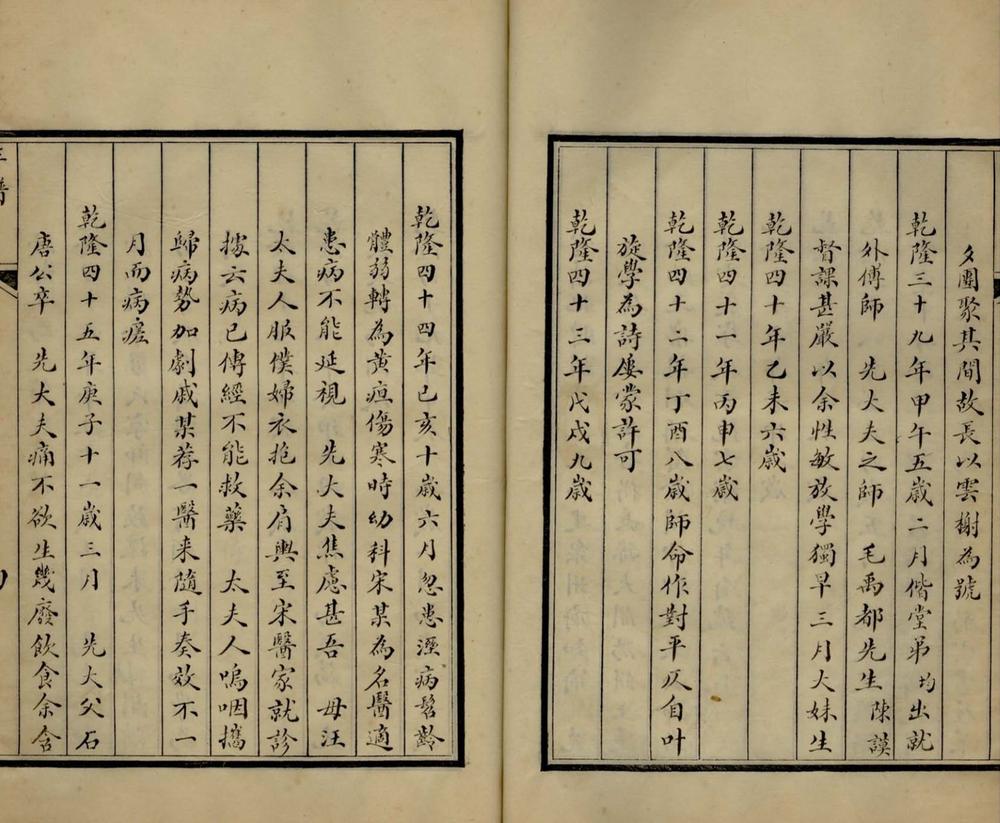 夕團聚其間故長以雲榭為號
乾隆三十九年甲午五歲二月偕堂弟均出就
外傅師　先大夫之師　毛禹都先生陳謨
督課甚嚴以余性敏放學獨早三月大妹生
乾隆四十年乙未六歲
乾隆四十一年丙申七歲
乾隆四十二年丁酉八歲師命作對平仄自叶
旋學為詩僂蒙許可
乾隆四十三年戊戌九歲
乾隆四十四年己亥十歲六月忽患溼病髫齡
體弱轉為黄疸傷寒時幼科宋某為名醫適
患病不能延視　先大夫焦慮甚吾　母汪
太夫人服僕婦衣抱余肩輿至宋醫家就診
據云病已傳經不能救藥　太夫人嗚咽攜
歸病勢加劇戚某荐一醫来隨手奏效不一
月而病瘥
乾隆四十五年庚子十一歲三月　先大父石
唐公卒　先大夫痛不欲生幾廢飲食余含
譜